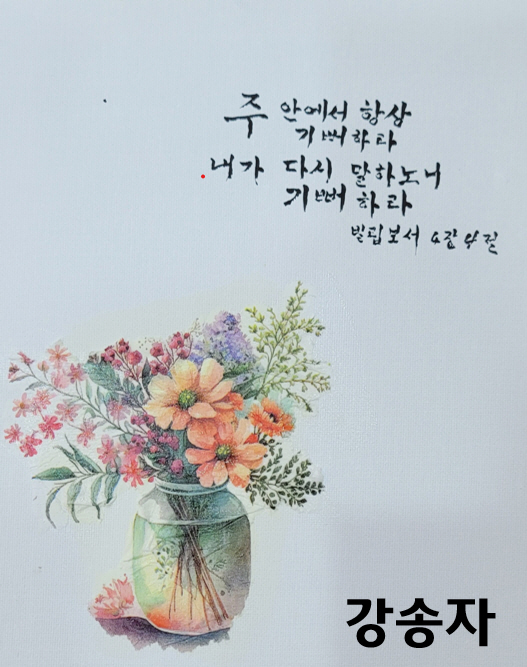 주 안에서 항상
기뻐하라
내가 다시 말하노니
기뻐하라
빌립보서 4장 4절
강송자